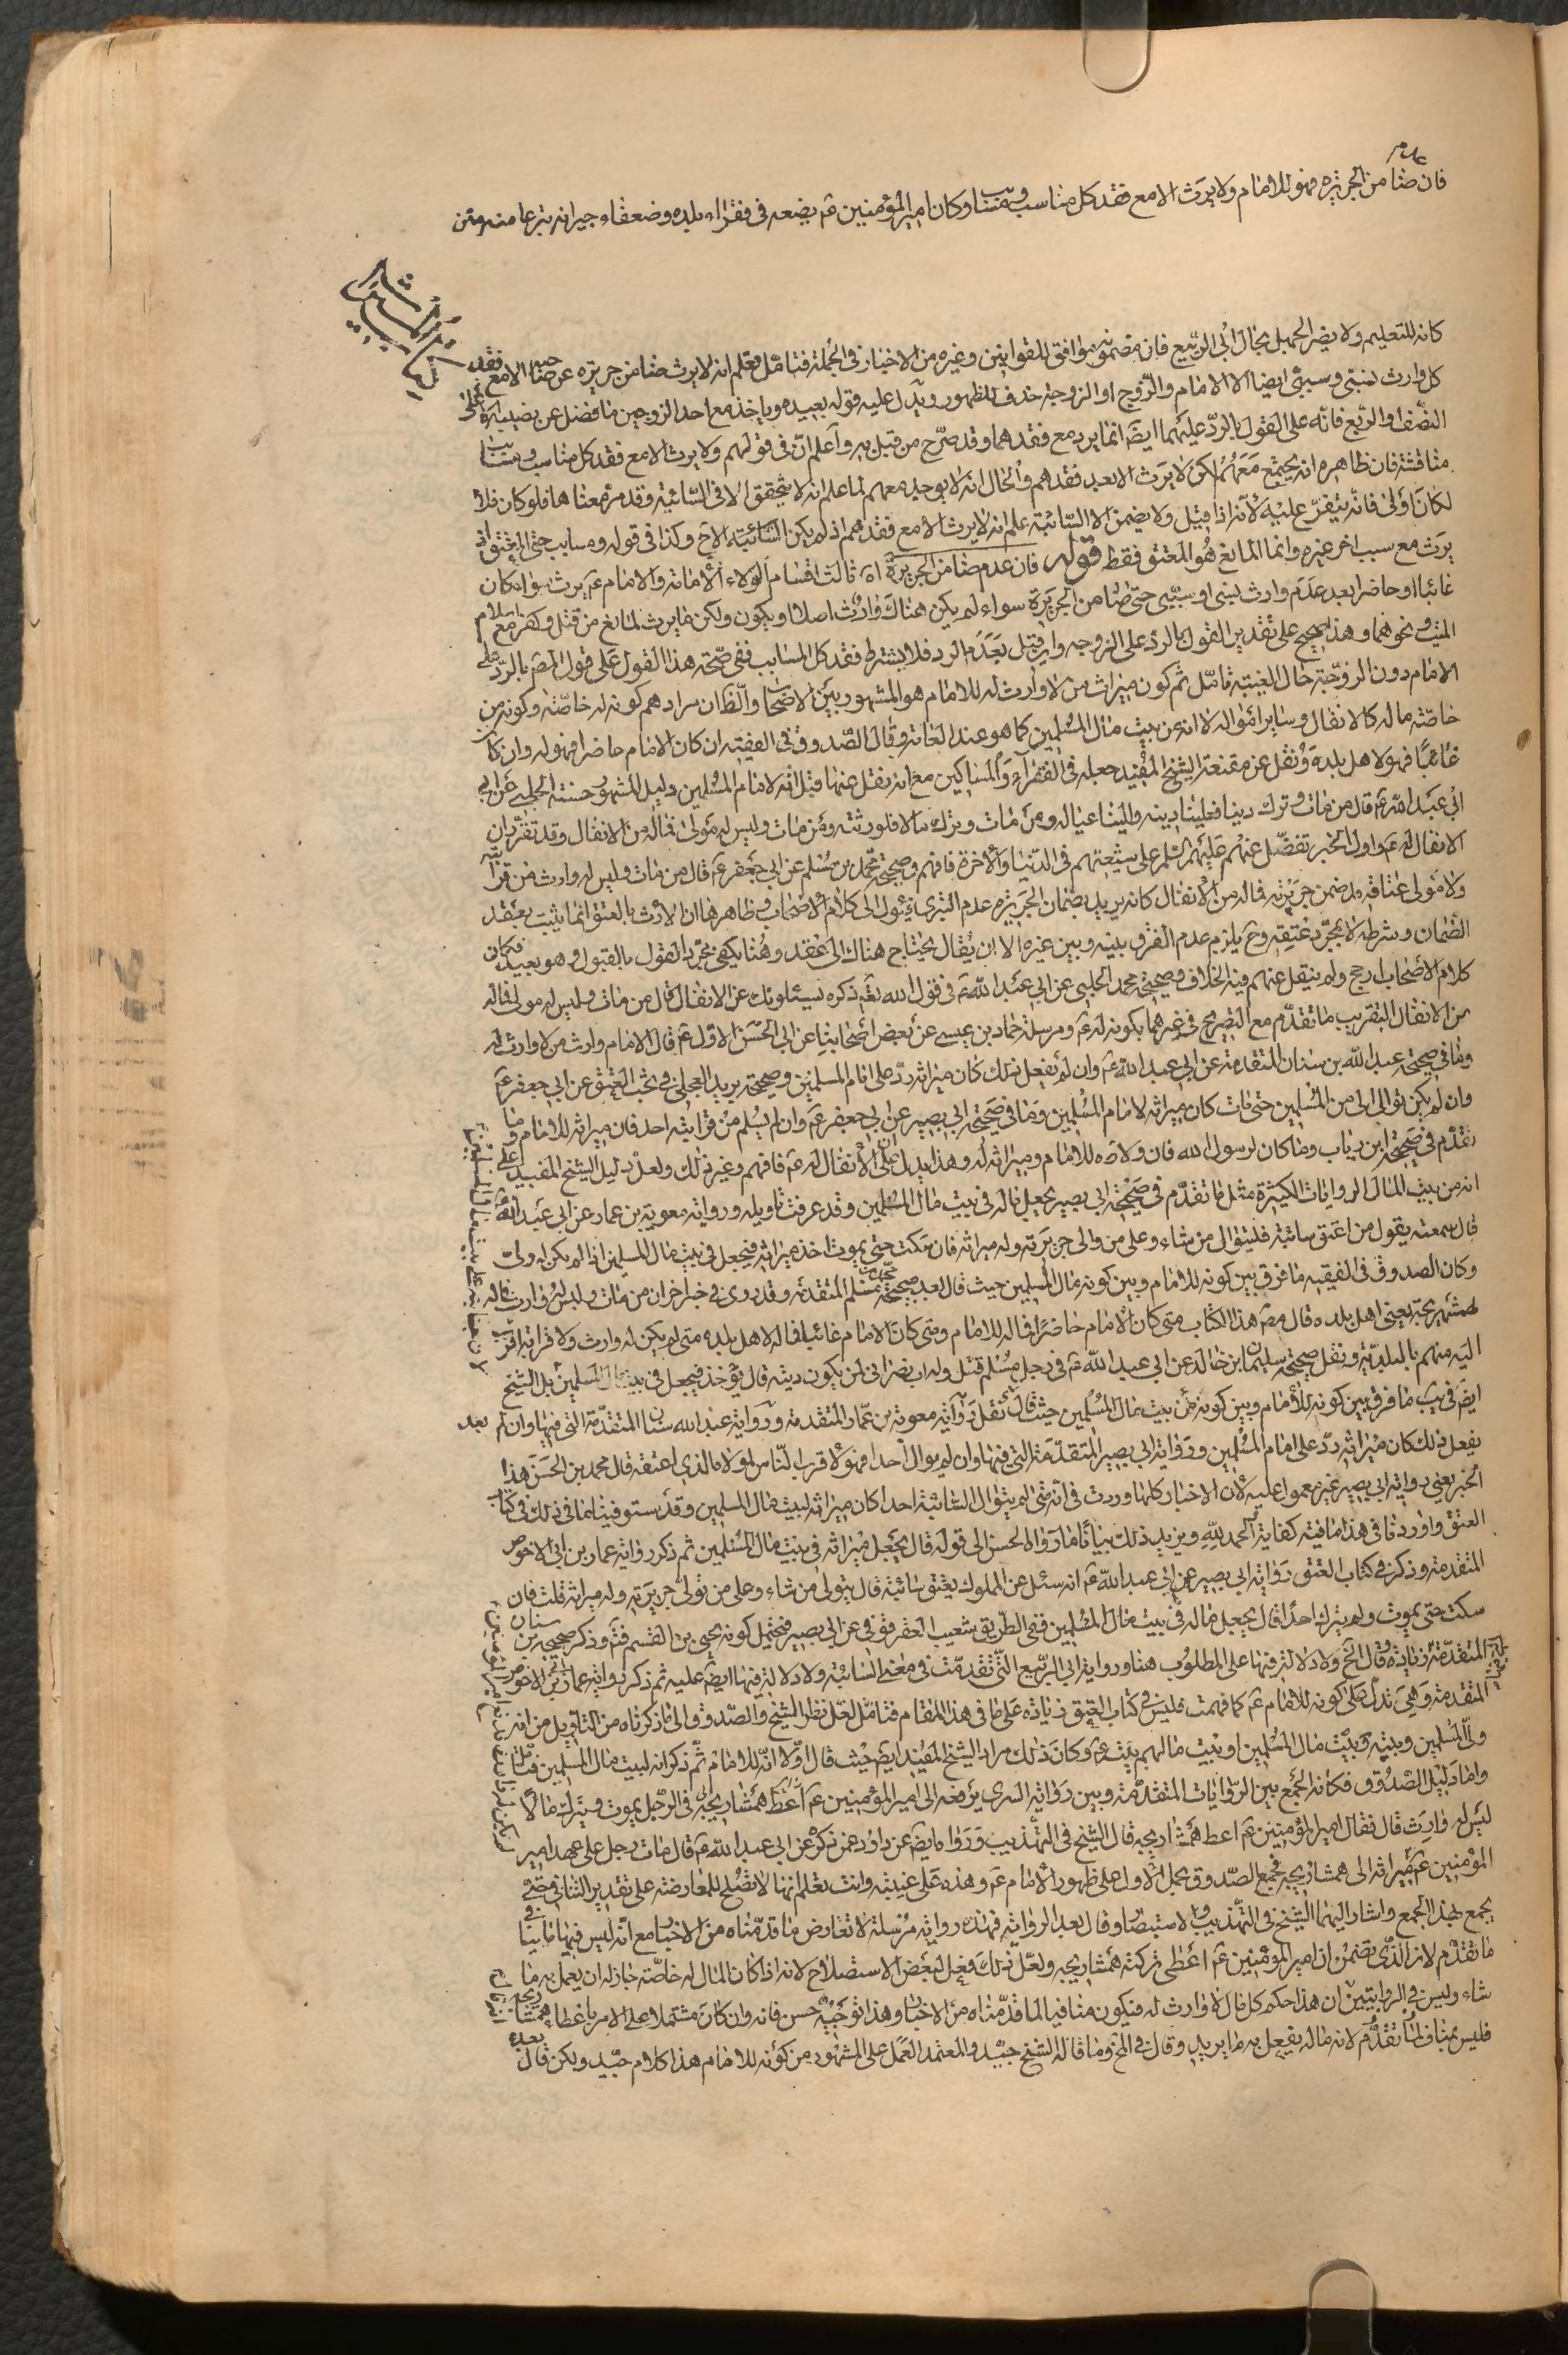 فان ضامن الجريره فهو للامام ولا يرث الا مع فقد كل مناسب ومسبب وكان امير المؤمنين ع يضعه فى فقراء بلده وضعفاء جيرانه تبرعا منه ومن
عدم
كانه للتعليم ولا يضر الجهل بحال ابى الربيع فان مضمونه موافق للقوانين وغيره من الاخبار فى الجملة فتامل وتعلم انه لا يرث ضامن جريره عن ضمنه الا مع فقد
كل وارث نسبى وسببى ايضا الا الامام والزوج او الزوجة حذف للظهور ويدل عليه قوله بعيده وياخذ مع احد الزوجين ما فضل عن نصيبه على
النصف او الربع فانه على القول بالرد عليهما ايضا انما يرد مع فقدهما وقد صرح من قبل به واعلم ان فى قولهم ولا يرث الا مع فقد كل مناسب ومسبب
مناقشة فان ظاهره انه يجتمع معهم لكن لا يرث الا بعد فقدهم والحال انه لا يوجد معهم لما علم انه لا يتحقق الا فى السائبة وقد مر معناها فلو كان فلا
لكان اولى فانه يتفرع عليه لانه اذا قيل ولا يضمن الا السائبة علم انه لا يرث الا مع فقدهم اذ لم يكن السائبة الا ح وكذا فى قوله ومسابب حتى المعتق اذ
يرث مع سبب اخر غيره وانما المانع هو المعتق فقط قوله فان عدم ضامن الجريرة اه ثالث اقسام الولاء الامامة والامام ع يرث سواء كان
غائبا او حاضرا بعد عدم وارث نسبى او سببى حتى ضامن الجريرة سواء لم يكن هناك وارث اصلا او يكون ولكن ما يرث لمانع من قتل وكفر مع اسلام
الميت ونحوهما وهذا صحيح على تقدير القول بالرد على الزوجه وان قيل بعدم الرد فلا يشترط فقد كل المسابب ففى صحة هذا القول على قول المصه بالرد على
الامام دون الزوجة حال الغيبة تامل ثم كون ميراث من لا وارث له للامام هو المشهور بين الاصحاب والظ ان مرادهم كونه له خاصة وكونه من
خاصة ماله كالانفال وساير امواله لا انه من بيت مال المسلمين كما هو عند العامة وقال الصدوق فى الفقيه ان كان الامام حاضرا فهو له وان كان
غائبا فهو لاهل بلده ونقل عن مقنعة الشيخ المفيد جعله فى الفقراء والمساكين مع انه نقل عنها قبل انه لامام المسلمين دليل المشهور حسنة الحلبى عن
ابى عبد الله ع قال من مات وترك دينا فعلينا دينه والينا عياله ومن مات وترك مالا فلورثته ومن مات وليس له مولى فماله من الانفال وقد تقرر ان
الانفال له ع واول الخبر تفضل عنهم عليهم السلم على شيعتهم فى الدنيا والاخرة فافهم وصحيحة محمد بن مسلم عن ابى جعفر ع قال من مات وليس له وارث من قرابة
ولا مولى عتاقه قد ضمن جريرته فماله من الانفال كانه يريد بضمان الجريره عدم التبرى فيئول الى كلام الاصحاب وظاهرها ان الارث بالعتق انما يثبت بعقد
الضمان وشرطه لا بمجرد عتقه وح يلزم عدم الفرق بينه وبين غيره الا ان يقال يحتاج هناك الى عقد وهنا يكفى مجرد القول بالقبول وهو بعيد فكان
كلام الاصحاب ارجح ولم ينقل عنهم فيه الخلاف وصحيحة محمد الحلبى عن ابى عبد الله ع فى قول الله تع ذكره يسئلونك عن الانفال قال من مات وليس له مولى فماله
من الانفال التقريب ما تقدم مع التصريح فى غيرهما بكونه له ع ومرسلة حماد بن عيسى عن بعض اصحابنا عن ابى الحسن الاول ع قال الامام وارث من لا وارث له
وما فى صحيحة عبد الله بن سنان المتقدمة عن ابى عبد الله ع وان لم يفعل ذلك كان ميراثه رد على امام المسلمين وصحيحة بريد العجلى فى بحث العتق عن ابى جعفر ع
وان لم يكن توالى الى من المسلمين حتى مات كان ميراثه لامام المسلمين وما فى صحيحة ابى بصير عن ابى جعفر ع وان لم يسلم من قرابته احد فان ميراثه للامام وما
تقدم فى صحيحة ابن رياب وما كان لرسول الله فان ولاءه للامام وميراثه له وهذا يدل على ان الانفال له ع فافهم وغير ذلك ولعل دليل الشيخ المفيد على
انه من بيت المال الروايات الكثيرة مثل ما تقدم فى صحيحة ابى بصير يجعل ماله فى بيت مال المسلمين وقد عرفت تاويله ورواية معوية بن عمار عن ابى عبد الله ع
قال سمعته يقول من اعتق سائبة فليتوال من شاء وعلى من والى جريرته وله ميراثه فان سكت حتى يموت اخذ ميراثه فيجعل فى بيت مال المسلمين اذا لم يكن له ولى
وكان الصدوق فى الفقيه ما فرق بين كونه للامام وبين كونه مال المسلمين حيث قال بعد صحيحة محمد بن مسلم المتقدمة وقد روى فى خبر اخر ان من مات وليس له وارث فماله
لهمشهريجه يعنى اهل بلده قال مصه هذا الكتاب متى كان الامام حاضرا فماله للامام ومتى كان الامام غائبا فماله لاهل بلده متى لم يكن له وارث ولا قرابة اقرب
اليه منهم بالبلدية ونقل صحيحة سليمان بن خالد عن ابى عبد الله ع فى رجل مسلم قتل وله اب نصرانى لمن يكون ديته قال يؤخذ فيجعل فى بيت مال المسلمين بل الشيخ
ايضا فى يب ما فرق بين كونه للامام وبين كونه من بيت مال المسلمين حيث قال نقل رواية معوية بن عمار المتقدمة ورواية عبد الله سنان المتقدمة التى فيها وان لم بعد
يفعل ذلك كان ميراثه رد على امام المسلمين ورواية ابى بصير المتقدمة التى فيها وان لم يوال احدا فهو لاقرب الناس لمولاه الذى اعتقه قال محمد بن الحسن هذا
الخبر يعنى رواية ابى بصير غير معمول عليه لان الاخبار كلها وردت فى انه متى لم يتوال السائبة احدا كان ميراثه لبيت مال المسلمين وقد استوفينا ما فى ذلك فى كتاب
العتق واوردنا فى هذا ما فيه كفاية الحمد لله ويزيد ذلك بيانا ما رواه الحسن الى قوله قال يجعل ميراثه فى بيت مال المسلمين ثم ذكر رواية عمار بن ابى الاحوص
المتقدمة وذكر فى كتاب العتق رواية ابى بصير عن ابى عبد الله ع انه سئل عن المملوك يعتق سائبة قال يتولى من شاء وعلى من تولى جريرته وله ميراثه قلت فان
سكت حتى يموت ولم يترك احدا قال يجعل ماله فى بيت مال المسلمين ففى الطريق شعيب العقرقوفى عن ابى بصير فيحتمل كونه يحيى بن القسم فتم وذكر صحيحة بن سنان
المتقدمة زيادة قال الخ ولا دلالة فيها على المطلوب هنا ورواية ابى الربيع التى تقدمت فى معنى السائبة ولا دلالة فيها ايضا عليه ثم ذكر رواية عمار بن ابى الاحوص
المتقدمة وهى تدل على كونه للامام ع كما فهمت فليس فى كتاب العتق زيادة على ما فى هذا المقام فتامل لعل نظر الشيخ والصدوق الى ما ذكرناه من التاويل من انه
ولى المسلمين وبيته بيت مال المسلمين او بيت مالهم بيته ع وكان ذلك مراد الشيخ المفيد ايضا حيث قال اولا انه للامام ثم ذكر انه لبيت مال المسلمين فتامل
واما دليل الصدوق فكانه الجمع بين الروايات المتقدمة وبين رواية السرى يرفعه الى امير المؤمنين ع اعط همشاريجه فى الرجل يموت ويترك مالا
ليس له وارث قال فقال امير المؤمنين ع اعط همشاريجه قال الشيخ فى التهذيب وروا ما ايضا عن داود عمن ذكره عن ابى عبد الله ع قال مات رجل على عهد امير
المؤمنين ع ميراثه الى همشاريجه فجمع الصدوق بحمل الاول على ظهور الامام ع وهذه على غيبته وانت تعلم انها لا تصلح للمعارضة على تقدير الثانى حتى
يجمع بهذا الجمع واشار اليهما الشيخ فى التهذيب والاستبصار وقال بعد الرواية فهذه رواية مرسلة لا تعارض ما قدمناه من الاخبار مع انه ليس فيها ما ينافى
ما تقدم لان الذى يتضمن ان امير المؤمنين ع اعطى تركته همشاريجه ولعل ذلك فعل لبعض الاستصلاح لانه اذا كان المال له خاصة جاز له ان يعمل به ما
شاء وليس فى الروايتين ان هذا حكم كل مال لا وارث له فيكون منافيا لما قدمناه من الاخبار وهذا توجيه حسن فانه وان كان مشتملا على الامر باعطاء همشاريجه
فليس بمناف لما تقدم لانه ماله يفعل به ما يريد وقال فى المخ وما قاله الشيخ جيد والمعتمد العمل على المشهور من كونه للامام هذا كلام جيد ولكن قال بعده